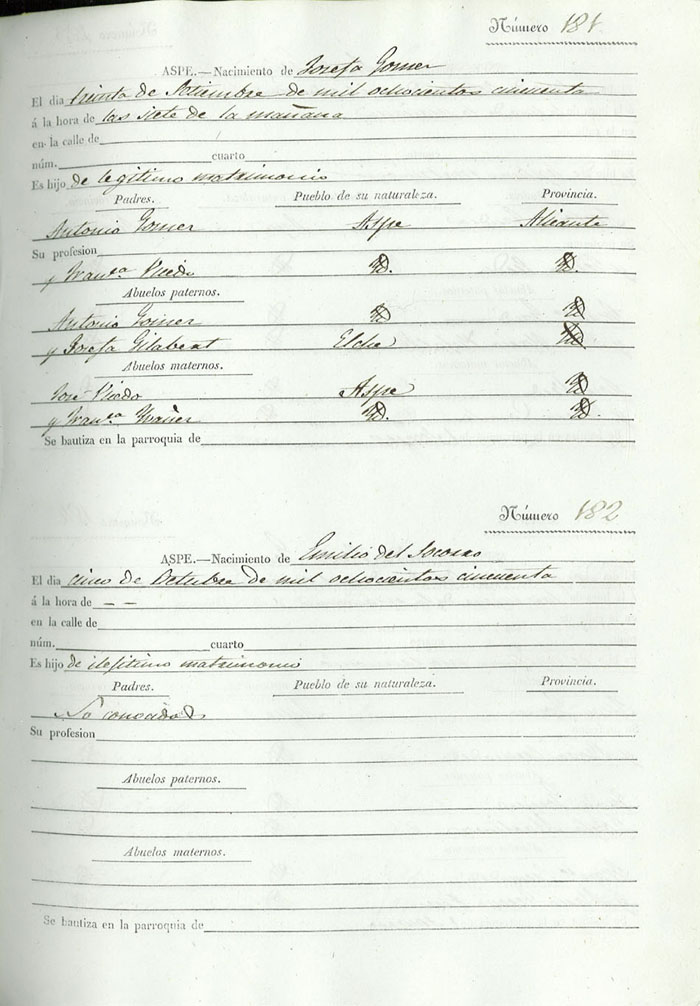 Número 181
ASPE.—Nacimiento de Josefa Gomer
El dia treinta de Setiembre de mil ochocientos cincuenta
á la hora de las siete de la mañana
en la calle de
núm. cuarto
Es hijo de legitimo matrimonio
Padres. Pueblo de su naturaleza. Provincia.
Antonio Gomer Aspe Alicante
Su profesion
y Franca. Picedo Yd. Yd.
Abuelos paternos.
Antonio Gomer Yd Yd
y Josefa Gilabert Elche Yd
Abuelos maternos.
José Picedo Aspe Yd
y Franca. Yd. Yd.
Se bautiza en la parroquia de
Número 182
ASPE.—Nacimiento de Emilio del Socorro
El dia cinco de Octubre de mil ochocientos cincuenta
á la hora de — —
en la calle de
núm. cuarto
Es hijo de ilegitimo matrimonio
Padres. Pueblo de su naturaleza. Provincia.
Su profesion
Abuelos paternos.
Abuelos maternos.
Se bautiza en la parroquia de